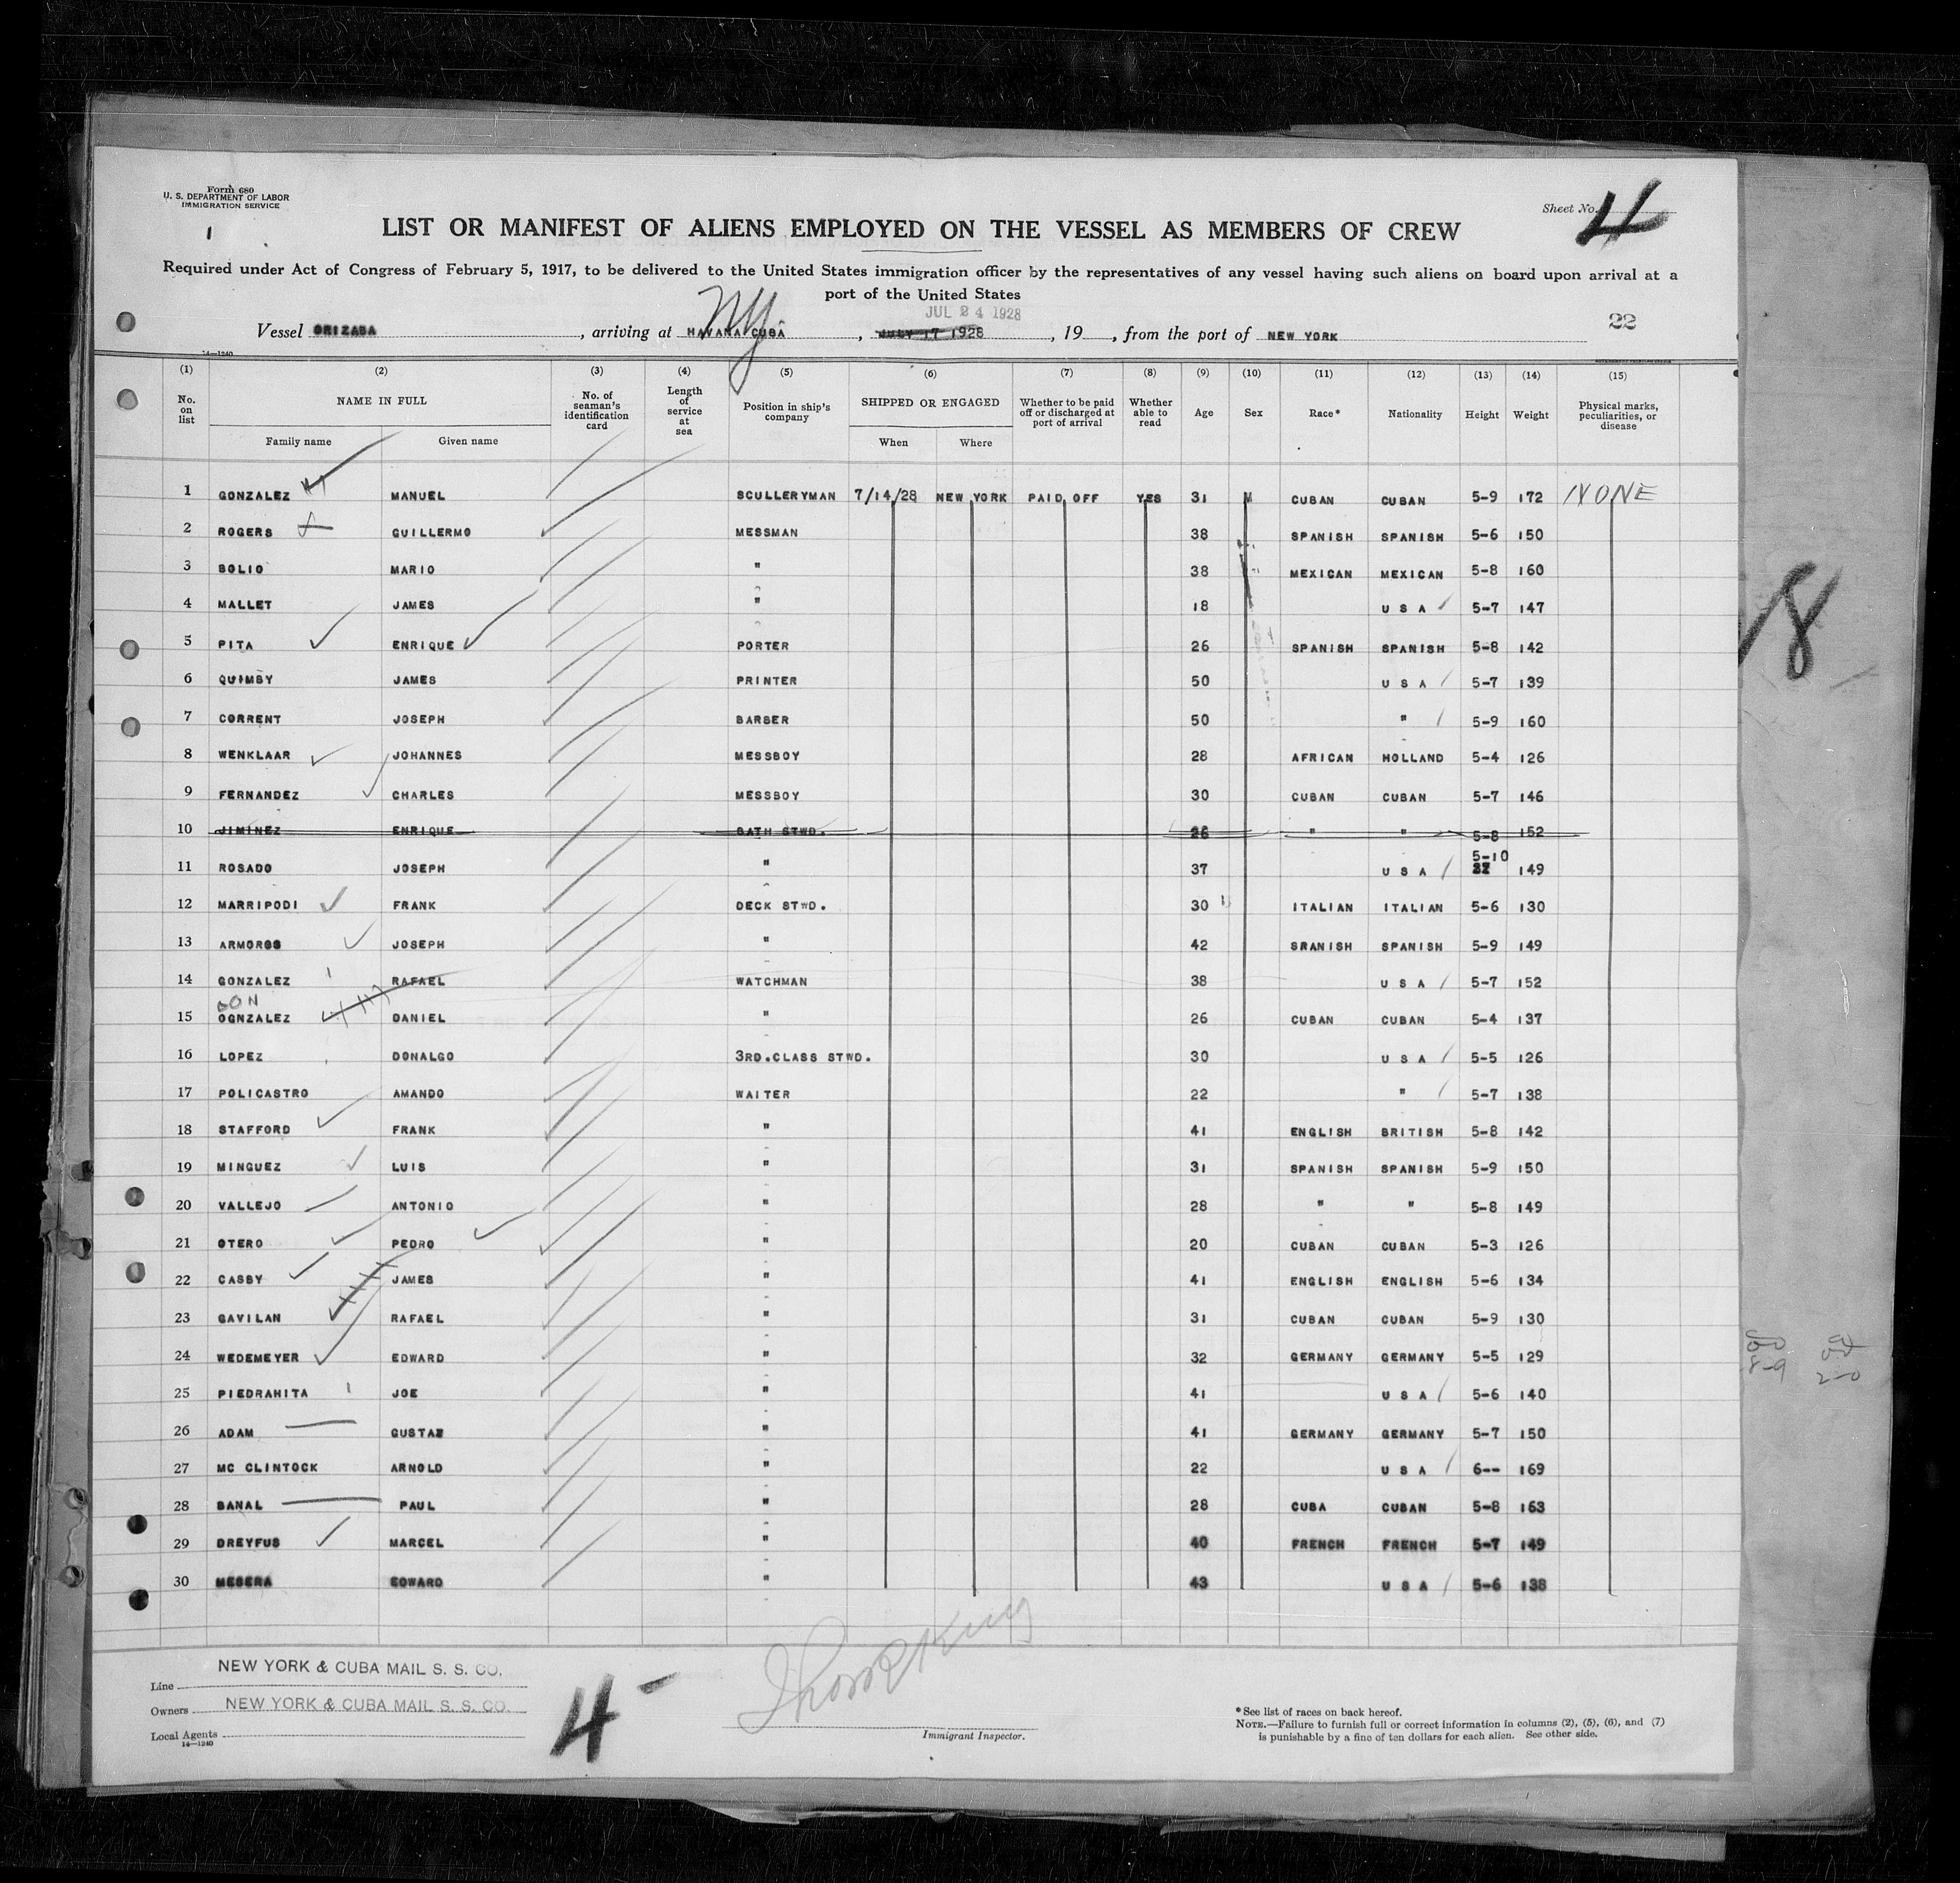 Form 680
U. S. DEPARTMENT OF LABOR
IMMIGRATION SERVICE
1
Sheet No. 4
LIST OR MANIFEST OF ALIENS EMPLOYED ON THE VESSEL AS MEMBERS OF CREW
Required under Act of Congress of February 5, 1917, to be delivered to the United States immigration officer by the representatives of any vessel having such aliens on board upon arrival at a
port of the United States
NY JUL 24 1928
Vessel ORIZABA, arriving at HAVANA CUBA, JULY 17 1928, 19, from the port of NEW YORK
22
14—1240
(1) (2) (3) (4) (5) (6) (7) (8) (9) (10) (11) (12) (13) (14) (15)
No. on list NAME IN FULL Family name Given name No. of seaman's identification card Length of service at sea Position in ship's company SHIPPED OR ENGAGED When Where Whether to be paid off or discharged at port of arrival Whether able to read Age Sex Race* Nationality Height Weight Physical marks, peculiarities, or disease
1 GONZALEZ MANUEL SCULLERYMAN 7/14/28 NEW YORK PAID OFF YES 31 M CUBAN CUBAN 5-9 172 NONE
2 ROGERS GUILLERMO MESSMAN 38 SPANISH SPANISH 5-6 150
3 BOLIO MARIO " 38 MEXICAN MEXICAN 5-8 160
4 MALLET JAMES " 18 U S A 5-7 147
5 PITA ENRIQUE PORTER 26 SPANISH SPANISH 5-8 142
6 QUIMBY JAMES PRINTER 50 U S A 5-7 139
7 CORRENT JOSEPH BARBER 50 " 5-9 160
8 WENKLAAR JOHANNES MESSBOY 28 AFRICAN HOLLAND 5-4 126
9 FERNANDEZ CHARLES MESSBOY 30 CUBAN CUBAN 5-7 146
10 JIMINEZ ENRIQUE BATH STWD. 26 " " 5-8 152
11 ROSADO JOSEPH " 37 U S A 5-10 149
12 MARRIPODI FRANK DECK STWD. 30 ITALIAN ITALIAN 5-6 130
13 ARMOROS JOSEPH " 42 SRANISH SPANISH 5-9 149
14 GONZALEZ RAFAEL WATCHMAN 38 U S A 5-7 152
GON
15 OGNZALEZ DANIEL " 26 CUBAN CUBAN 5-4 137
16 LOPEZ DONALGO 3RD.CLASS STWD. 30 U S A 5-5 126
17 POLICASTRO AMANDO WAITER 22 " 5-7 138
18 STAFFORD FRANK " 41 ENGLISH BRITISH 5-8 142
19 MINGUEZ LUIS " 31 SPANISH SPANISH 5-9 150
20 VALLEJO ANTONIO " 28 " " 5-8 149
21 OTERO PEDRO " 20 CUBAN CUBAN 5-3 126
22 CASBY JAMES " 41 ENGLISH ENGLISH 5-6 134
23 GAVILAN RAFAEL " 31 CUBAN CUBAN 5-9 130
24 WEDEMEYER EDWARD " 32 GERMANY GERMANY 5-5 129
25 PIEDRAHITA JOE " 41 U S A 5-6 140
26 ADAM GUSTAZ " 41 GERMANY GERMANY 5-7 150
27 MC CLINTOCK ARNOLD " 22 U S A 6-- 169
28 BANAL PAUL " 28 CUBA CUBAN 5-8 163
29 DREYFUS MARCEL " 40 FRENCH FRENCH 5-7 149
30 MESERA EDWARD " 43 U S A 5-6 138
8
8-9 2-0
Line NEW YORK & CUBA MAIL S. S. CO.
Owners NEW YORK & CUBA MAIL S. S. CO.
Local Agents
14—1240
4 -
Immigrant Inspector.
*See list of races on back hereof.
NOTE.—Failure to furnish full or correct information in columns (2), (5), (6), and (7)
is punishable by a fine of ten dollars for each alien. See other side.